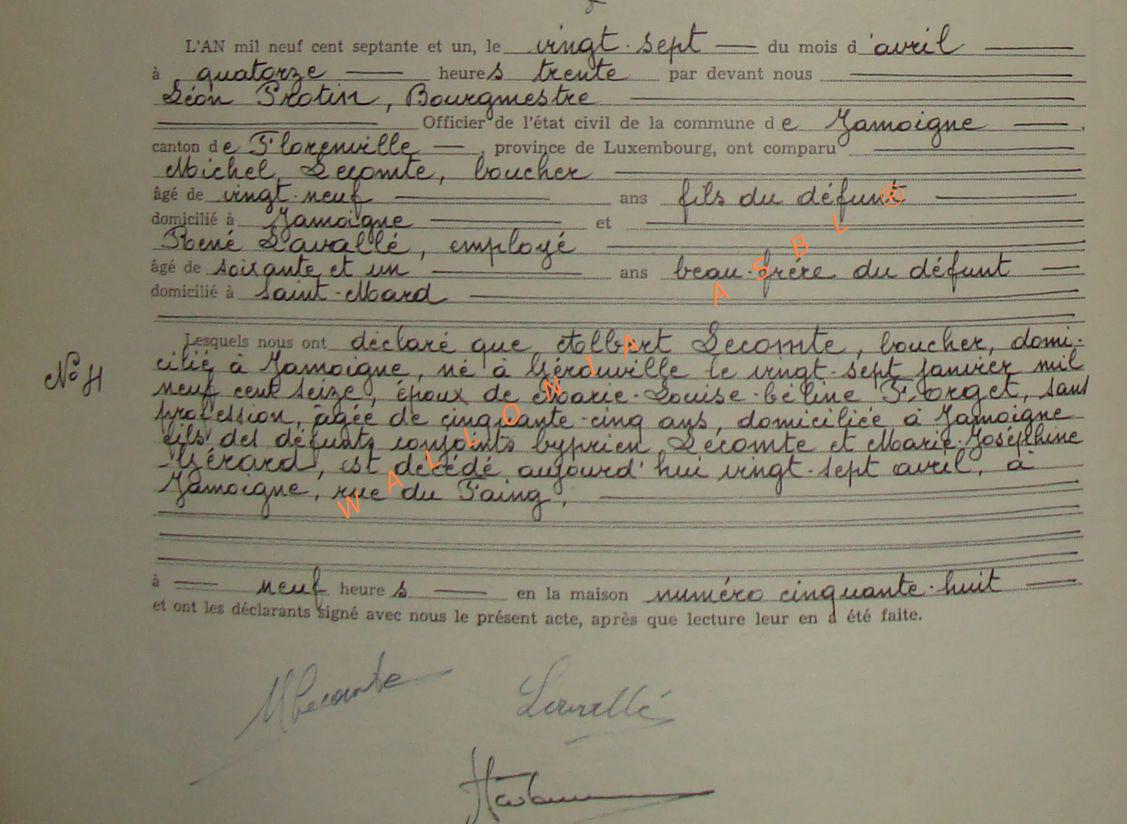 L'AN mil neuf cent septante et un, le vingt-sept du mois d'avril
à quatorze heures trente par devant nous
Léon Protin, Bourgmestre
Officier de l'état civil de la commune de Jamoigne
canton de Florenville, province de Luxembourg, ont comparu
Michel Lecomte, boucher
âgé de vingt-neuf ans fils du défunt
domicilié à Jamoigne et
René Lavallé, employé
âgé de soixante et un ans beau-frère du défunt
domicilié à Saint-Mard
Lesquels nous ont déclaré que Albert Lecomte, boucher, domi-
cilié à Jamoigne, né à Gérouville le vingt-sept janvier mil
neuf cent seize, époux de Marie-Louise-Céline Forget, sans
profession, âgée de cinquante-cinq ans, domiciliée à Jamoigne
fils des défunts conjoints Cyprien Lecomte et Marie-Joséphine
Gérard, est décédé aujourd'hui vingt-sept avril, à
Jamoigne, rue du Faing,
à neuf heures en la maison numéro cinquante-huit
et ont les déclarants signé avec nous le présent acte, après que lecture leur en a été faite.
MLecomte Lavallé
WALLONIA ASBL ®